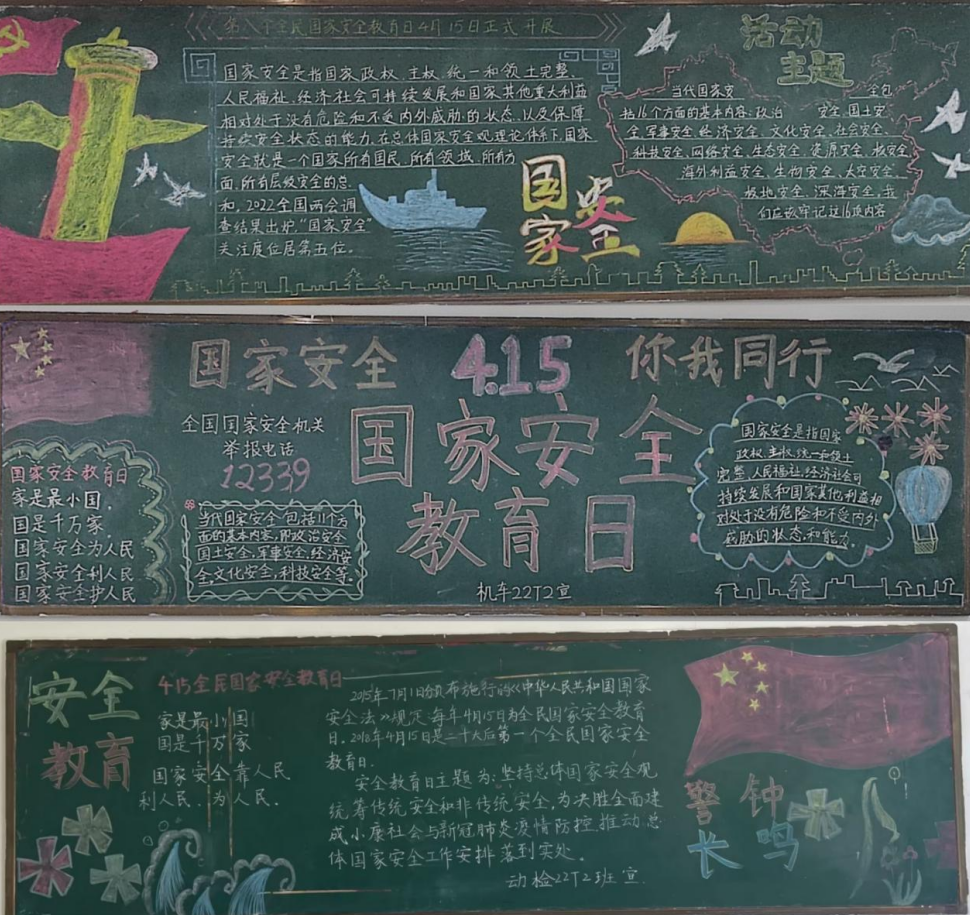 第八个全民国家安全教育日4月15日正式开展
国家安全是指国家政权、主权、统一和领土完整、
人民福祉、经济社会可持续发展和国家其他重大利益
相对处于没有危险和不受内外威胁的状态,以及保障
持续安全状态的能力,在总体国家安全观理论体系下,国家
安全就是一个国家所有国民、所有领域、所有方
面、所有层级安全的总
和,2022全国两会调
查结果出炉,“国家安全”
关注度位居第五位。
国家
安全
活动
主题
当代国家安 全包
括16个方面的基本内容:政治 安全、国土安
全、军事安全、经济安全、文化安全、社会安全、
科技安全、网络安全、生态安全、资源安全、核安全
海外利益安全、生物安全、太空安全、
极地安全、深海安全,我
们应该牢记这16项内容
国家安全 4.15 你我同行
全国国家安全机关
举报电话
12339
国家安全
教育日
机车22T2宣
国家安全教育日
家是最小国,
国是千万家,
国家安全为人民
国家安全利人民
国家安全护人民
当代国家安全包括11个方
面的基本内容,即政治安全
国土安全,军事安全,经济安
全,文化安全,科技安全等。
国家安全是指国家
政权、主权、统一和领土
完整、人民福祉、经济社会可
持续发展和国家其他利益相
对处于没有危险和不受内外
威胁的状态和能力。
安全
教育
4·15全民国家安全教育日
家是最小国
国是千万家
国家安全靠人民
利人民、为人民.
2015年7月1日颁布施行的《中华人民共和国国家
安全法》规定每年4月15日为全民国家安全教育
日。2018年4月15日是二十大后第一个全民国家安全
教育日.
安全教育日主题为:坚持总体国家安全观,
统筹传统安全和非传统安全,为决胜全面建
成小康社会与新冠肺炎疫情防控,推动总
体国家安全工作安排落到实处。
动检22T2班宣.
警钟
长鸣